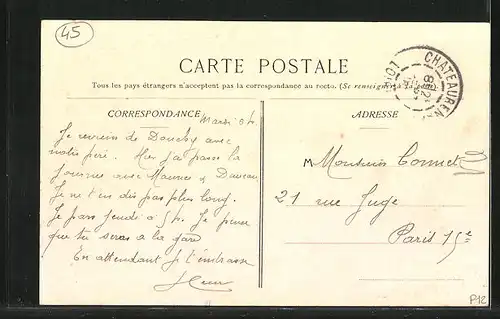 45
CARTE POSTALE
Tous les pays étrangers n'acceptent pas la correspondance au recto. (Se renseigner à la
CORRESPONDANCE
ADRESSE
CHATEAUREN
LOIRET
Mardi 5h.
Je reviens de Douchy avec
notre père. Hier j'ai passé la
journée avec Maurice &
Je ne t'en dis pas plus long.
Je pars jeudi à 5h. Je pense
que tu seras à la gare
En attendant je t'embrasse
M Monsieur
21 rue Juge
Paris 15e
P12